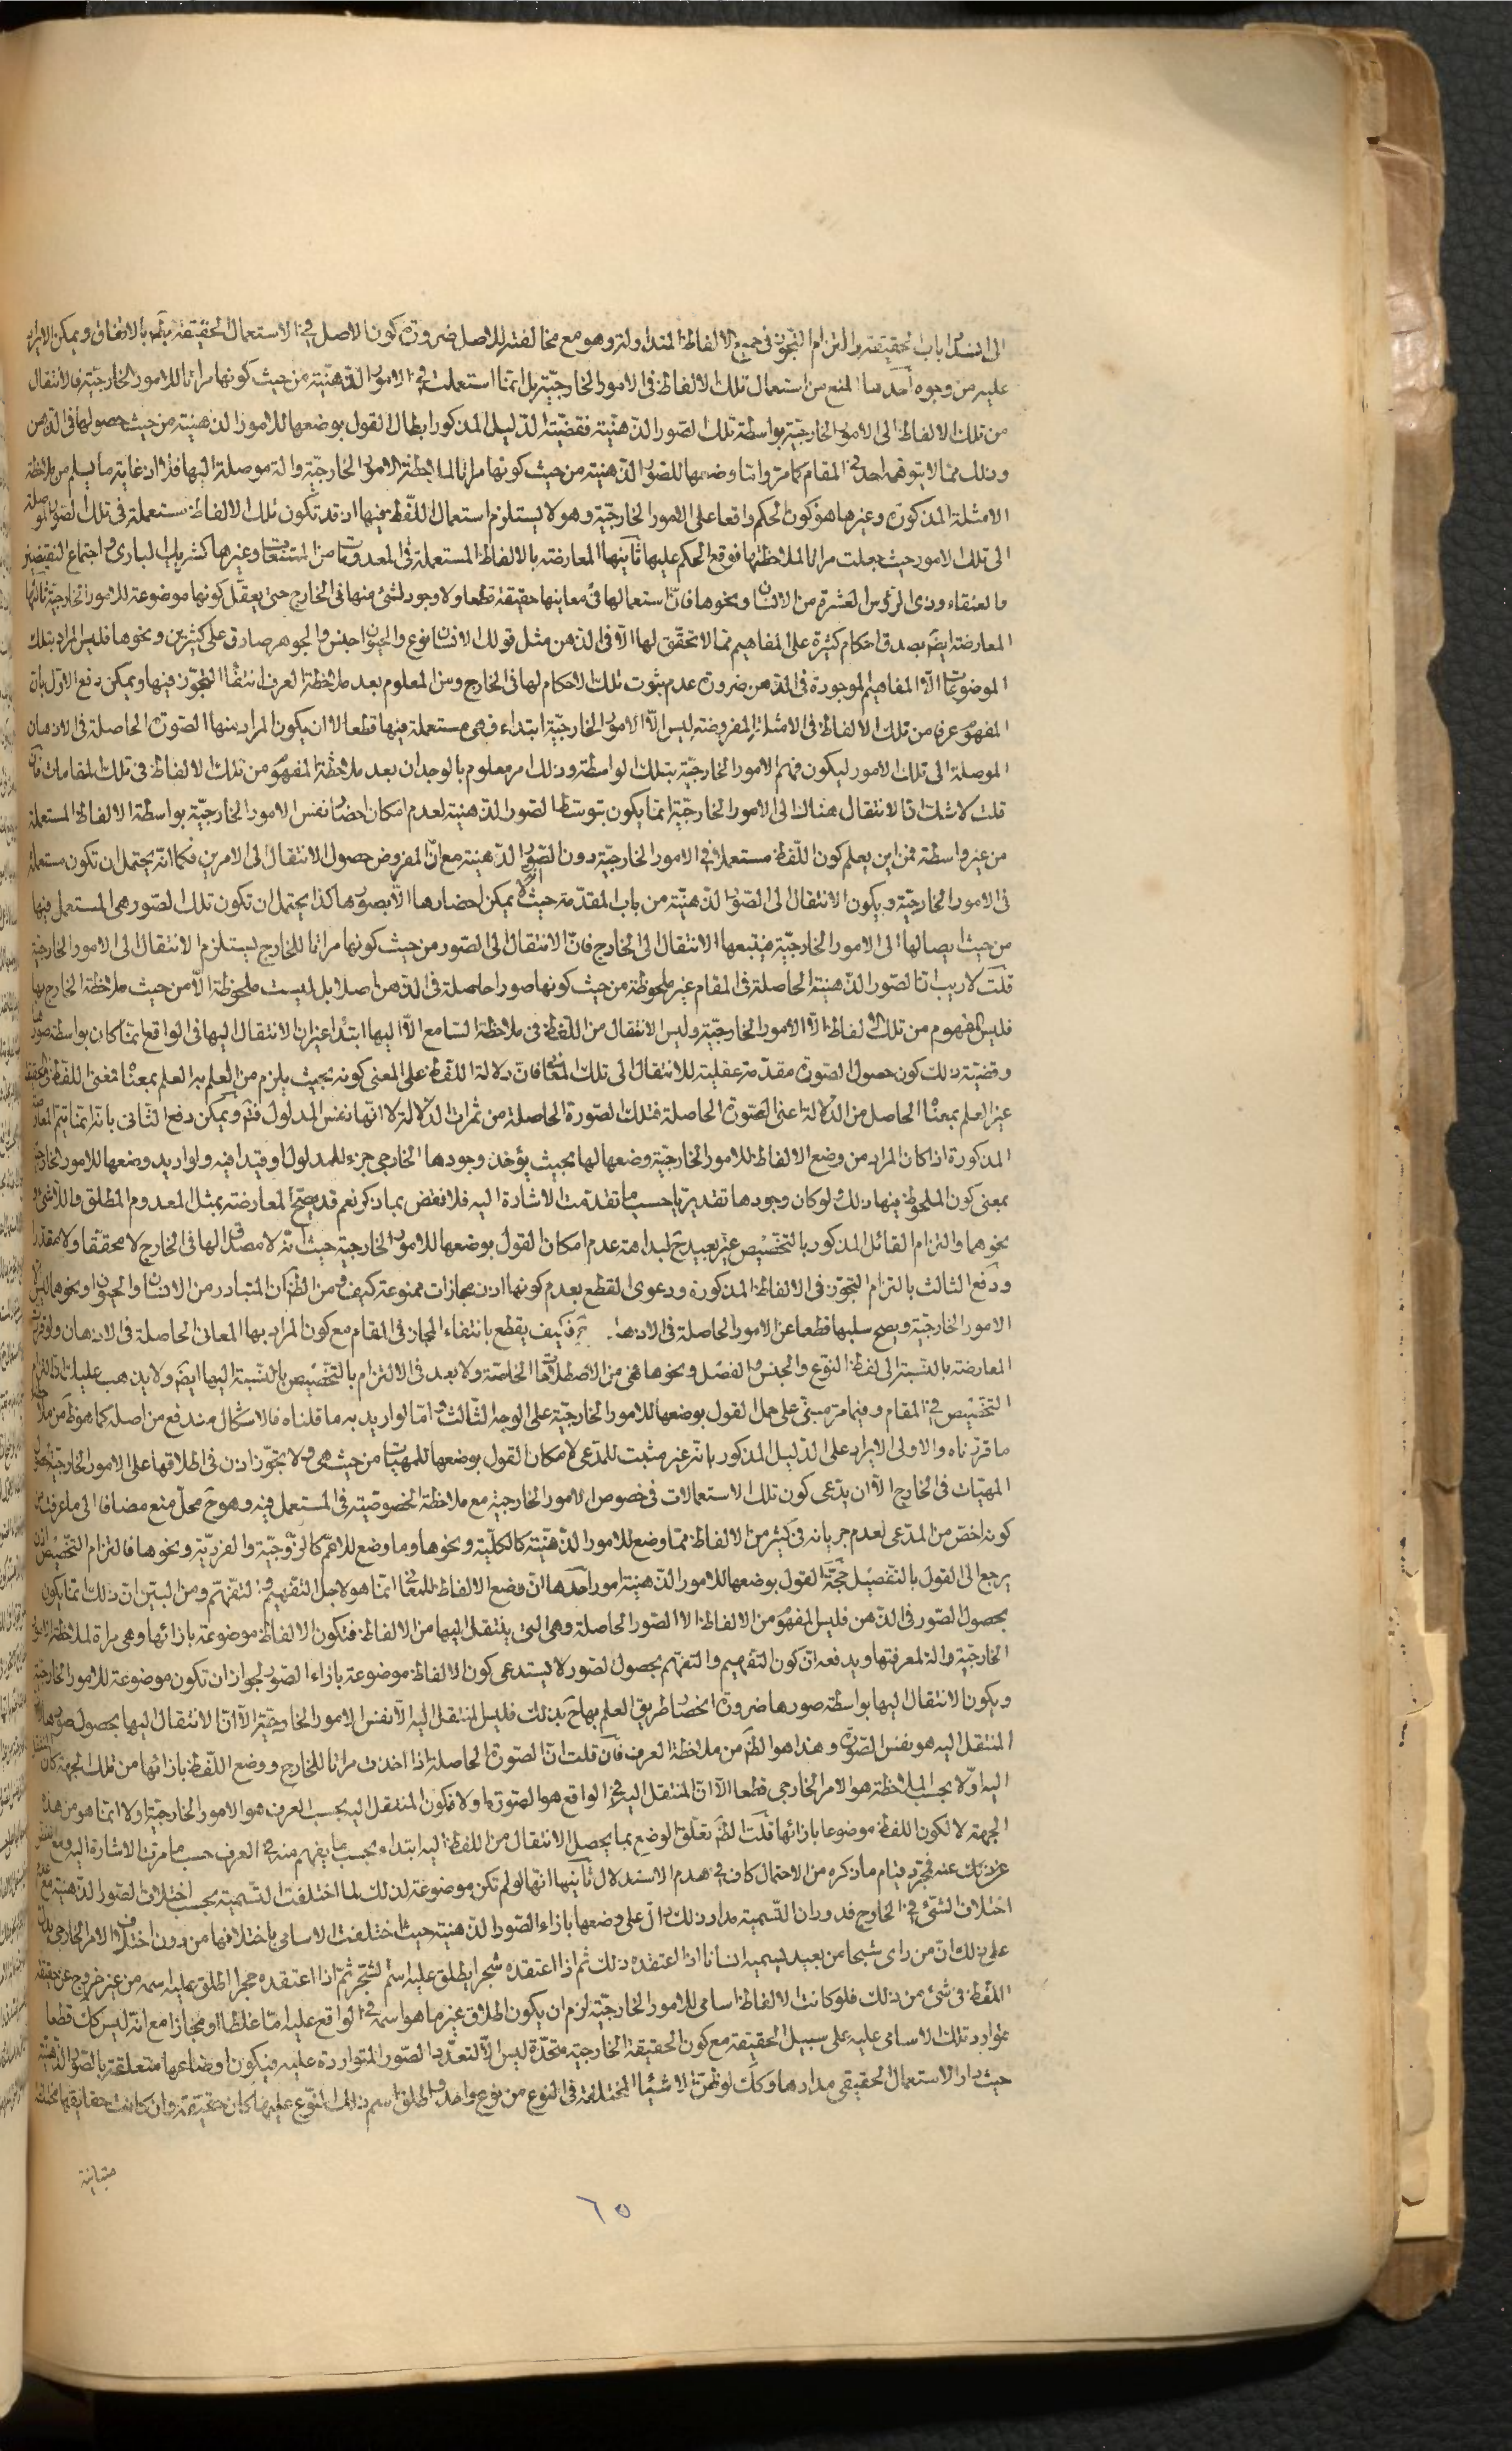 الى انسداد باب الحقيقة والتزام التجوز فى جميع الالفاظ المتداولة وهو مع مخالفته للاصل ضرورة كون الاصل فى الاستعمال الحقيقة بالاتفاق ويمكن الايراد
عليه من وجوه احدها المنع من استعمال تلك الالفاظ فى الامور الخارجيّة بل انما استعملت فى الامور الذهنيّة من حيث كونها مراتا للامور الخارجيّة فالانتقال
من تلك الالفاظ الى الامور الخارجيّة بواسطة تلك الصّور الذّهنيّة فقضيّة الدّليل المذكور ابطال القول بوضعها للامور الذهنيّة من حيث حصولها فى الذهن
وذلك ممّا لا يتوهّمه احد فى المقام كما مرّ وامّا وضعها للصّور الذّهنيّة من حيث كونها مراتا لملاحظة الامور الخارجيّة والة موصلة اليها فلا اذ غاية ما يسلم من ملاحظة
الامثلة المذكورة وغيرها هو كون الحكم واقعا على الامور الخارجيّة وهو لا يستلزم استعمال اللّفظ فيها اذ قد تكون تلك الالفاظ مستعملة فى تلك الصّور الموصلة
الى تلك الامور حيث جعلت مراتا لملاحظتها فوقع الحكم عليها ثانيها المعارضة بالالفاظ المستعملة فى المعدومات من الممتنعات وغيرها كشريك البارى واجتماع النقيضين
والعنقاء وذى الرؤس العشرة من الانسان ونحوها فانّ استعمالها فى معانيها حقيقة قطعا ولا وجود لشئ منها فى الخارج حتى يعقل كونها موضوعة للامور الخارجيّة ثالثها
المعارضة ايضً بصدق احكام كثيرة على المفاهيم ممّا لا تحقّق لها الّا فى الذهن مثل قولك الانسان نوع والحيوان جنس والجوهر صادق على كثيرين ونحوها فليس المراد بتلك
الموضوعات الّا المفاهيم الموجودة فى الذهن ضرورة عدم ثبوت تلك الاحكام لها فى الخارج ومن المعلوم بعد ملاحظة العرف انتفاء التجوّز فيها ويمكن دفع الاوّل بان
المفهوم عرفا من تلك الالفاظ فى الامثلة المفروضة ليس الّا الامور الخارجيّة ابتداء فهى مستعملة فيها قطعا لا ان يكون المراد منها الصّورة الحاصلة فى الاذهان
الموصلة الى تلك الامور ليكون فهم الامور الخارجيّة بتلك الواسطة وذلك امر معلوم بالوجدان بعد ملاحظة المفهوم من تلك الالفاظ فى تلك المقامات فان
قلت لا شك انّ الانتقال هناك الى الامور الخارجيّة انما يكون بتوسّط الصّور الذهنيّة لعدم امكان احضار نفس الامور الخارجيّة بواسطة الالفاظ المستعملة
من غير واسطة فمن اين يعلم كون اللّفظ مستعملا فى الامور الخارجيّة دون الصّور الذّهنيّة مع انّ المفروض حصول الانتقال الى الامرين فكما انّه يحتمل ان تكون مستعملة
فى الامور الخارجيّة ويكون الانتقال الى الصّور الذّهنيّة من باب المقدّمة حيث لا يمكن احضارها الّا بصورها كذا يحتمل ان تكون تلك الصّور هى المستعمل فيها
من حيث ايصالها الى الامور الخارجيّة فيتبعها الانتقال الى الخارج فانّ الانتقال الى الصّور من حيث كونها مراتا للخارج يستلزم الانتقال الى الامور الخارجيّة
قلت لا ريب انّ الصّور الذّهنيّة الحاصلة فى المقام غير ملحوظة من حيث كونها صورا حاصلة فى الذهن اصلا بل ليست ملحوظة الّا من حيث ملاحظة الخارج بها
فليس المفهوم من تلك الالفاظ الّا الامور الخارجيّة وليس الانتقال من اللّفظ فى ملاحظة السّامع الّا اليها ابتداء غير ان الانتقال اليها فى الواقع انما كان بواسطة صورها
وقضيّة ذلك كون حصول الصّورة مقدّمة عقليّة للانتقال الى تلك المعانى فان دلالة اللّفظ على المعنى كونه بحيث يلزم من العلم به العلم بمعناه فمعنى اللّفظ
غير العلم بمعناه الحاصل من الدّلالة اعنى الصّورة الحاصلة فتلك الصّورة الحاصلة من ثمرات الدّلالة لا انّها نفس المدلول فتم ويمكن دفع الثّانى بانّه انما يتمّ المعارضة
المذكورة اذا كان المراد من وضع الالفاظ للامور الخارجيّة وضعها لها بحيث يؤخذ وجودها الخارجى جزء للمدلول او قيدا فيه ولو اريد وضعها للامور الخارجيّة
بمعنى كون الملحوظ فيها ذلك ولو كان وجودها تقديريا حسب ما تقدّمت الاشارة اليه فلا نقض بما ذكر نعم قد يصحّ المعارضة بمثل المعدوم المطلق واللّاشئ
نحوهما والتزام القائل المذكور بالتخصيص غير بعيد ح لبداهة عدم امكان القول بوضعها للامور الخارجيّة حيث انّه لا مصداق لها فى الخارج لا محقّقا ولا مقدّرا
ودفع الثالث بالتزام التجوّز فى الالفاظ المذكورة ودعوى القطع بعدم كونها اذن مجازات ممنوعة كيف ومن الظّ ان المتبادر من الانسان والحيوان ونحوها ليس الّا
الامور الخارجيّة ويصح سلبها قطعا عن الامور الحاصلة فى الاذهان فكيف يقطع بانتفاء المجاز فى المقام مع كون المراد بها المعانى الحاصلة فى الاذهان ولو فرض
المعارضة بالنّسبة الى لفظ النّوع والجنس والفصل ونحوها فهى من الاصطلاحات الخاصّة ولا بعد فى الالتزام بالتّخصيص بالنّسبة اليها ايضً ولا يذهب عليك انّ التزام
التّخصيص فى المقام وفيما مرّ مبنى على حمل القول بوضعها للامور الخارجيّة على الوجه الثّالث وامّا لو اريد به ما قلناه فالاشكال مندفع من اصله كما هو ظ من
ما قرّرناه والاولى الايراد على الدّليل المذكور بانّه غير مثبت للمدّعى لامكان القول بوضعها للمهيات من حيث هى ولا تجوّز اذن فى اطلاقها على الامور الخارجيّة
المهيّات فى الخارج الّا ان يدّعى كون تلك الاستعمالات فى خصوص الامور الخارجيّة مع ملاحظة الخصوصيّة فى المستعمل فيه وهو ح محلّ منع مضافا الى ما عرفت من
كونه اخصّ من المدّعى لعدم جريانه فى كثير من الالفاظ ممّا وضع للامور الذّهنيّة كالكليّة ونحوها وما وضع للاعمّ كالزّوجيّة والفرديّة ونحوها فالتزام التّخصيص اذن
يرجع الى القول بالتّفصيل حجّة القول بوضعها للامور الذهنيّة امور احدها انّ وضع الالفاظ للمعانى انما هو لاجل التّفهيم والتفهّم ومن البيّن انّ ذلك انما يكون
بحصول الصّور فى الذّهن فليس المفهوم من الالفاظ الّا الصّور الحاصلة وهى التى ينتقل اليها من الالفاظ فتكون الالفاظ موضوعة بازائها وهى مراة لملاحظة الامور
الخارجيّة والة لمعرفتها ويدفعه انّ كون التفهيم والتفهّم بحصول الصّور لا يستدعى كون الالفاظ موضوعة بازاء الصّور لجواز ان تكون موضوعة للامور الخارجيّة
ويكون الانتقال اليها بواسطة صورها ضرورة انحصار طريق العلم بها ح بذلك فليس المنتقل اليه الّا نفس الامور الخارجيّة الّا انّ الانتقال اليها بحصول صورها
المنتقل اليه هو نفس الصّورة وهذا هو الظّ من ملاحظة العرف فان قلت انّ الصّورة الحاصلة اذا اخذت مراتا للخارج ووضع اللّفظ بازائها من تلك الجهة كان المنتقل
اليه اوّلا بحسب الملاحظة هو الامر الخارجى قطعا الّا انّ المنتقل اليه فى الواقع هو الصّورة اولا فكون المنتقل اليه بحسب العرف هو الامور الخارجيّة اولا انما هو من هذه
الجهة لا لكون اللفظ موضوعا بازائها قلت الظّ تعلّق الوضع بما يحصل الانتقال من اللفظ اليه ابتداء بحسب ما يفهم منه فى العرف حسب ما مرّت الاشارة اليه ومع الغضّ
عن ذلك عنه فمجرّد قيام ما ذكره من الاحتمال كاف فى هدم الاستدلال ثانيها انّها لو لم تكن موضوعة لذلك لما اختلفت التّسمية بحسب اختلاف الصّور الذّهنيّة مع عدم
اختلاف الشئ فى الخارج فدوران التّسمية مدار ذلك دالّ على وضعها بازاء الصّور الذّهنيّة حيث اختلفت الاسامى باختلافها من دون اختلاف الامر الخارجى يدلّ
على ذلك انّ من راى شبحا من بعيد يسمّيه انسانا اذا اعتقده ذلك ثم اذا اعتقده شجرا يطلق عليه اسم الشّجر ثمّ اذا اعتقده حجرا اطلق عليه اسمه من غير خروج عن حقيقة
اللّفظ فى شئ من ذلك فلو كانت الالفاظ اسامى للامور الخارجيّة لزم ان يكون اطلاق غير ما هو اسمه فى الواقع عليه امّا غلطا او مجازا مع انّه ليس كك قطعا
فتوارد تلك الاسامى عليه على سبيل الحقيقة مع كون الحقيقة الخارجيّة متّحدة ليس الّا لتعدّد الصّور المتواردة عليه فيكون اوضاعها متعلّقة بالصّور الذّهنيّة
حيث دار الاستعمال الحقيقى مدارها وكك لو ظنّ الاشياء المختلفة فى النوع من نوع واحد واطلق اسم ذلك النّوع عليها كان حقيقة وان كانت حقايقها مختلفة
متباينة
٦٥